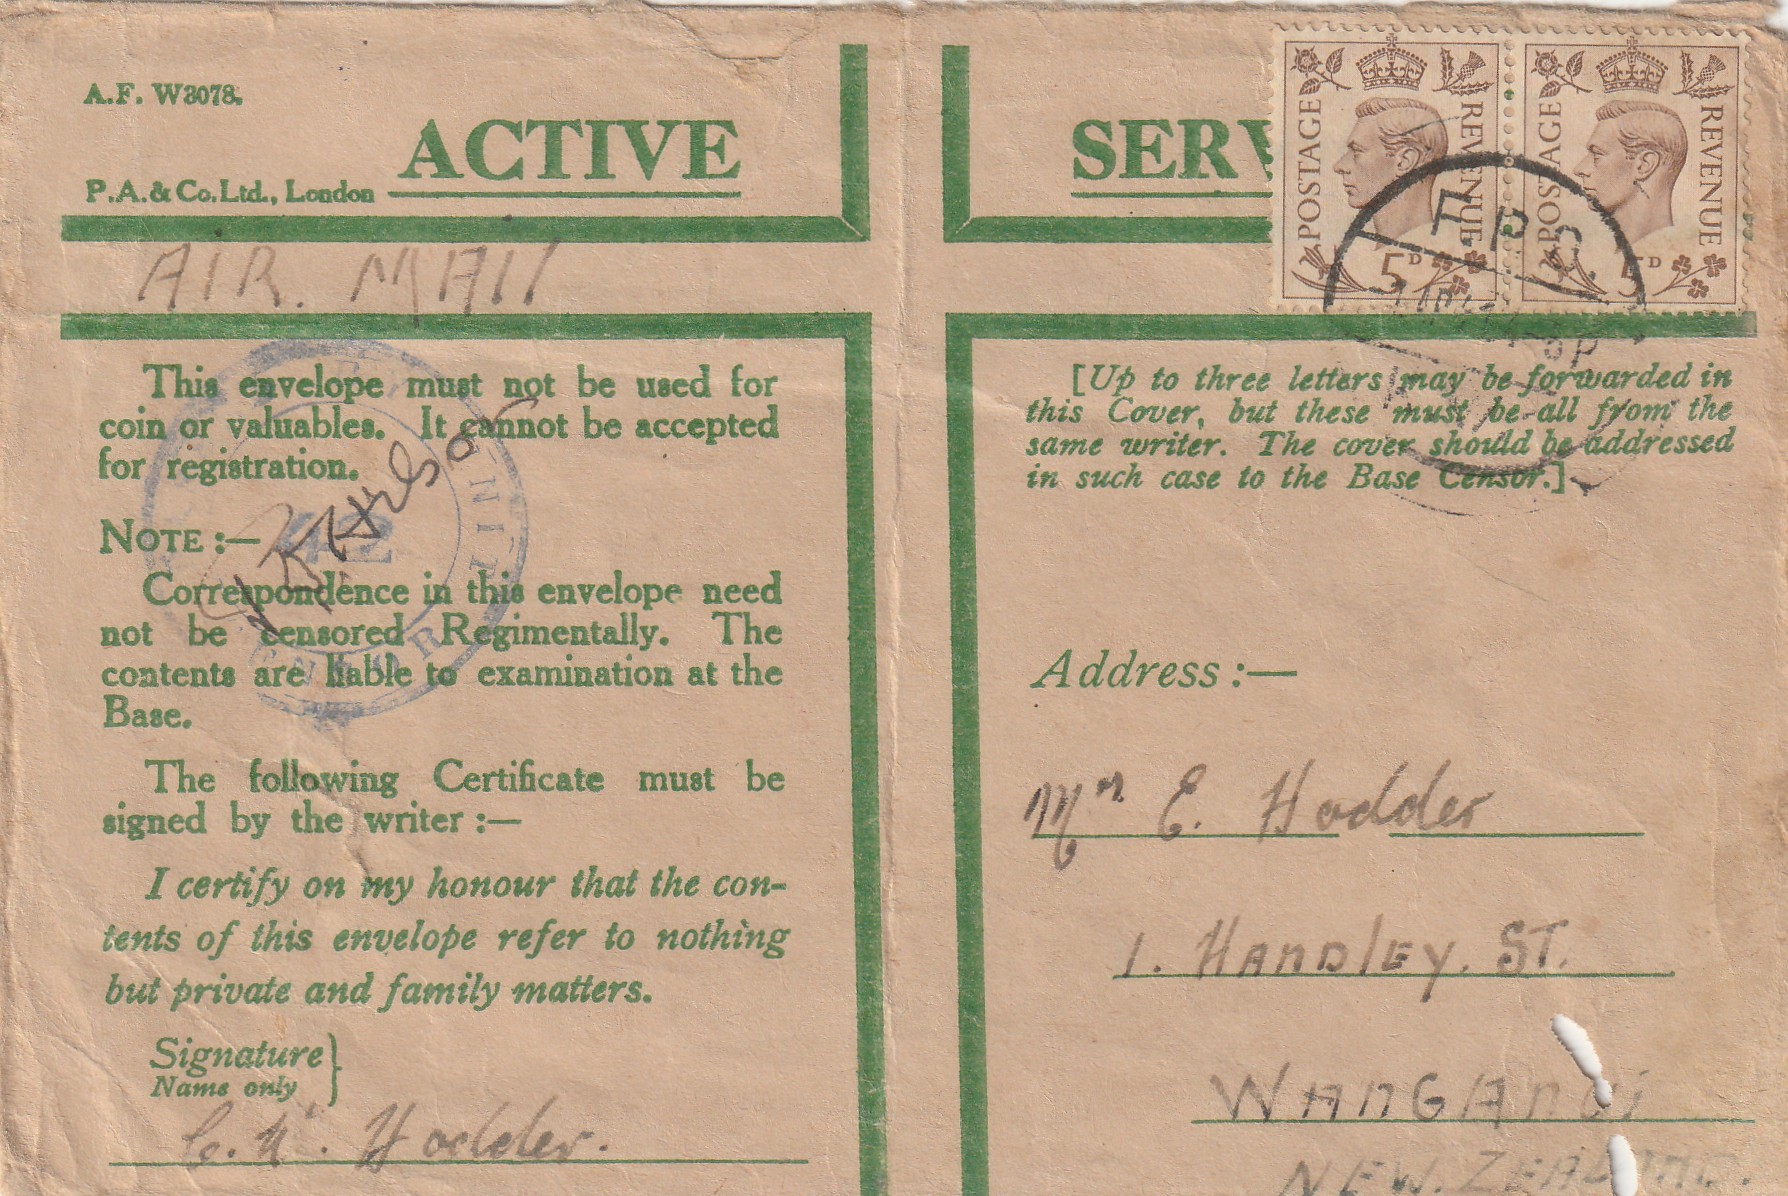 A.F. W3078.
P.A. & Co. Ltd., London
ACTIVE SERV
POSTAGE REVENUE
5D
POSTAGE REVENUE
5D
F.P.O.
AIR. MAIL
This envelope must not be used for
coin or valuables. It cannot be accepted
for registration.
NOTE :—
Correspondence in this envelope need
not be censored Regimentally. The
contents are liable to examination at the
Base.
The following Certificate must be
signed by the writer :—
I certify on my honour that the con-
tents of this envelope refer to nothing
but private and family matters.
Signature }
Name only
Hodder.
UNIT
42
CENSOR
[Up to three letters may be forwarded in
this Cover, but these must be all from the
same writer. The cover should be addressed
in such case to the Base Censor.]
Address :—
E. Hodder
1. HANDLEY. ST.
WANGANUI
NEW. ZEALAND.